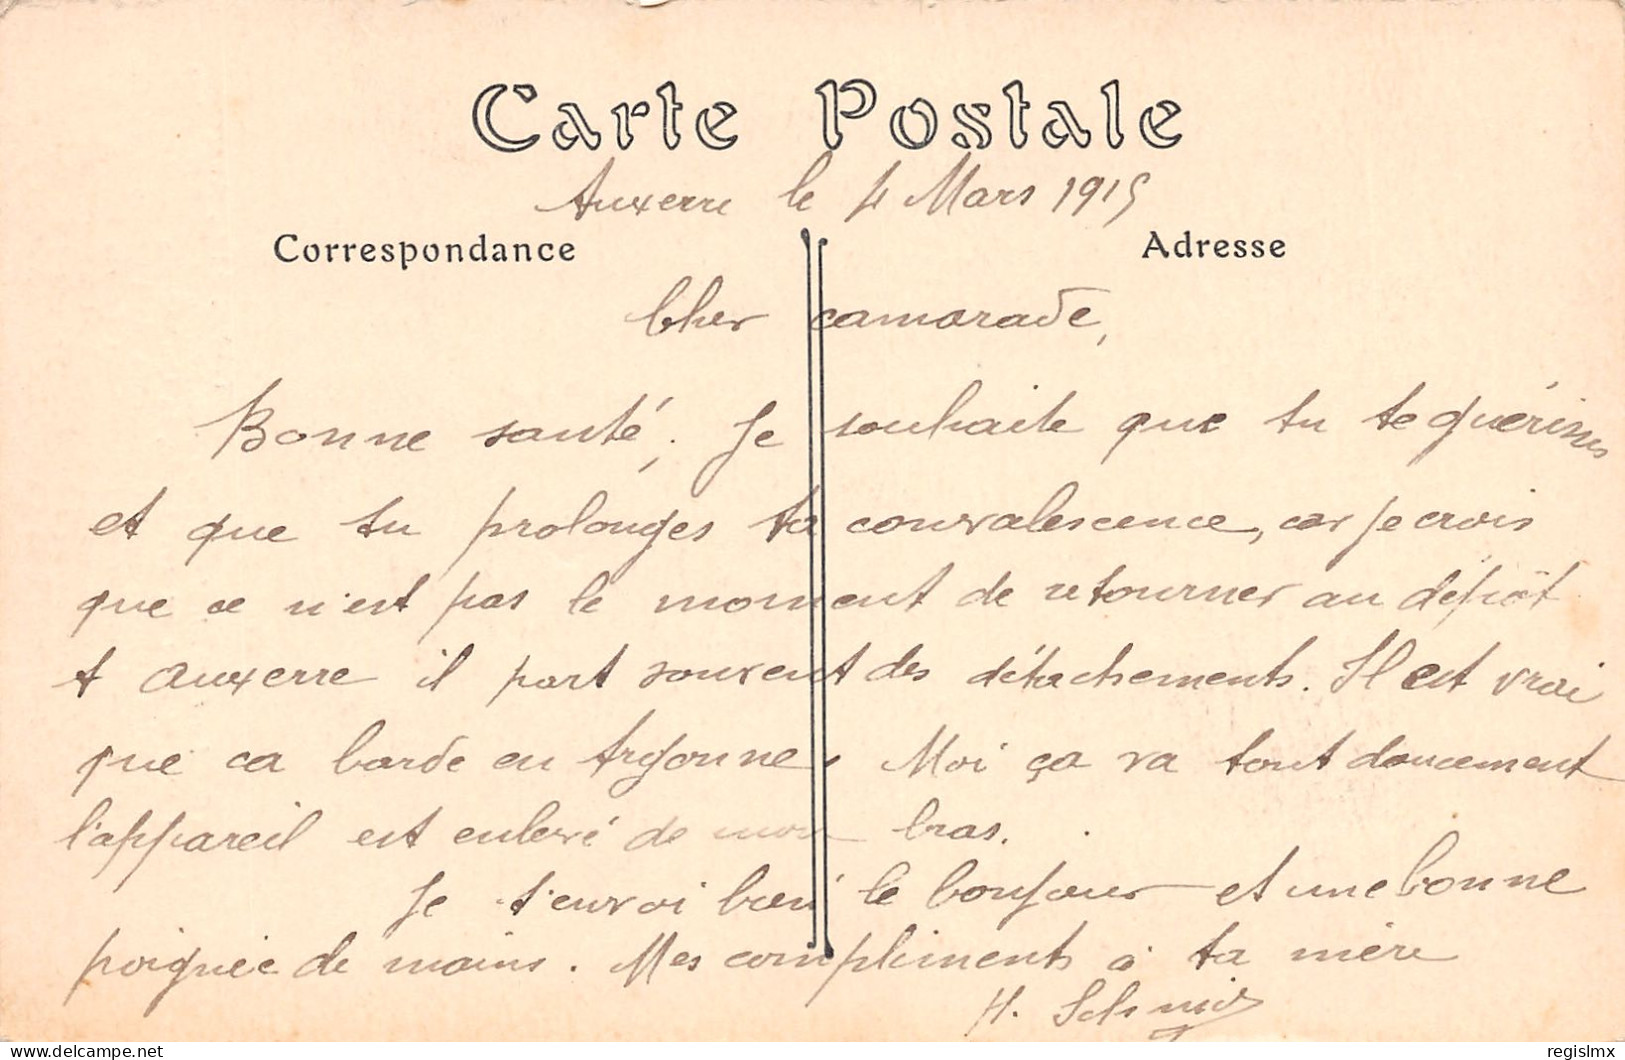 Carte Postale
Auxerre le 4 Mars 1915
Correspondance
Adresse
Cher camarade,
Bonne santé, Je souhaite que tu te guérisses
et que tu prolonges ta convalescence, car je crois
que ce n'est pas le moment de retourner au dépôt
A Auxerre il part souvent des détachements. Il est vrai
que ca barde en Argonne. Moi ça va tout doucement
l'appareil est enlevé de mon bras.
Je t'envoi bien le bonjour et une bonne
poignée de mains. Mes compliments à ta mère
H. Schmid
delcampe.net
regislmx